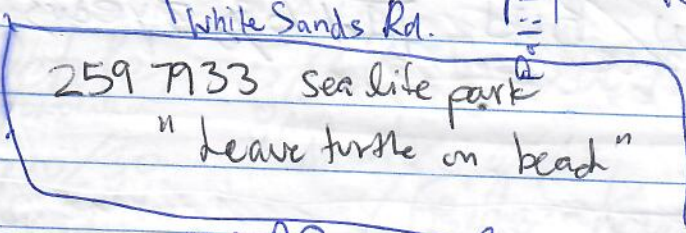 White Sands Rd.
259 7933 sea life park
"Leave turtle on beach"